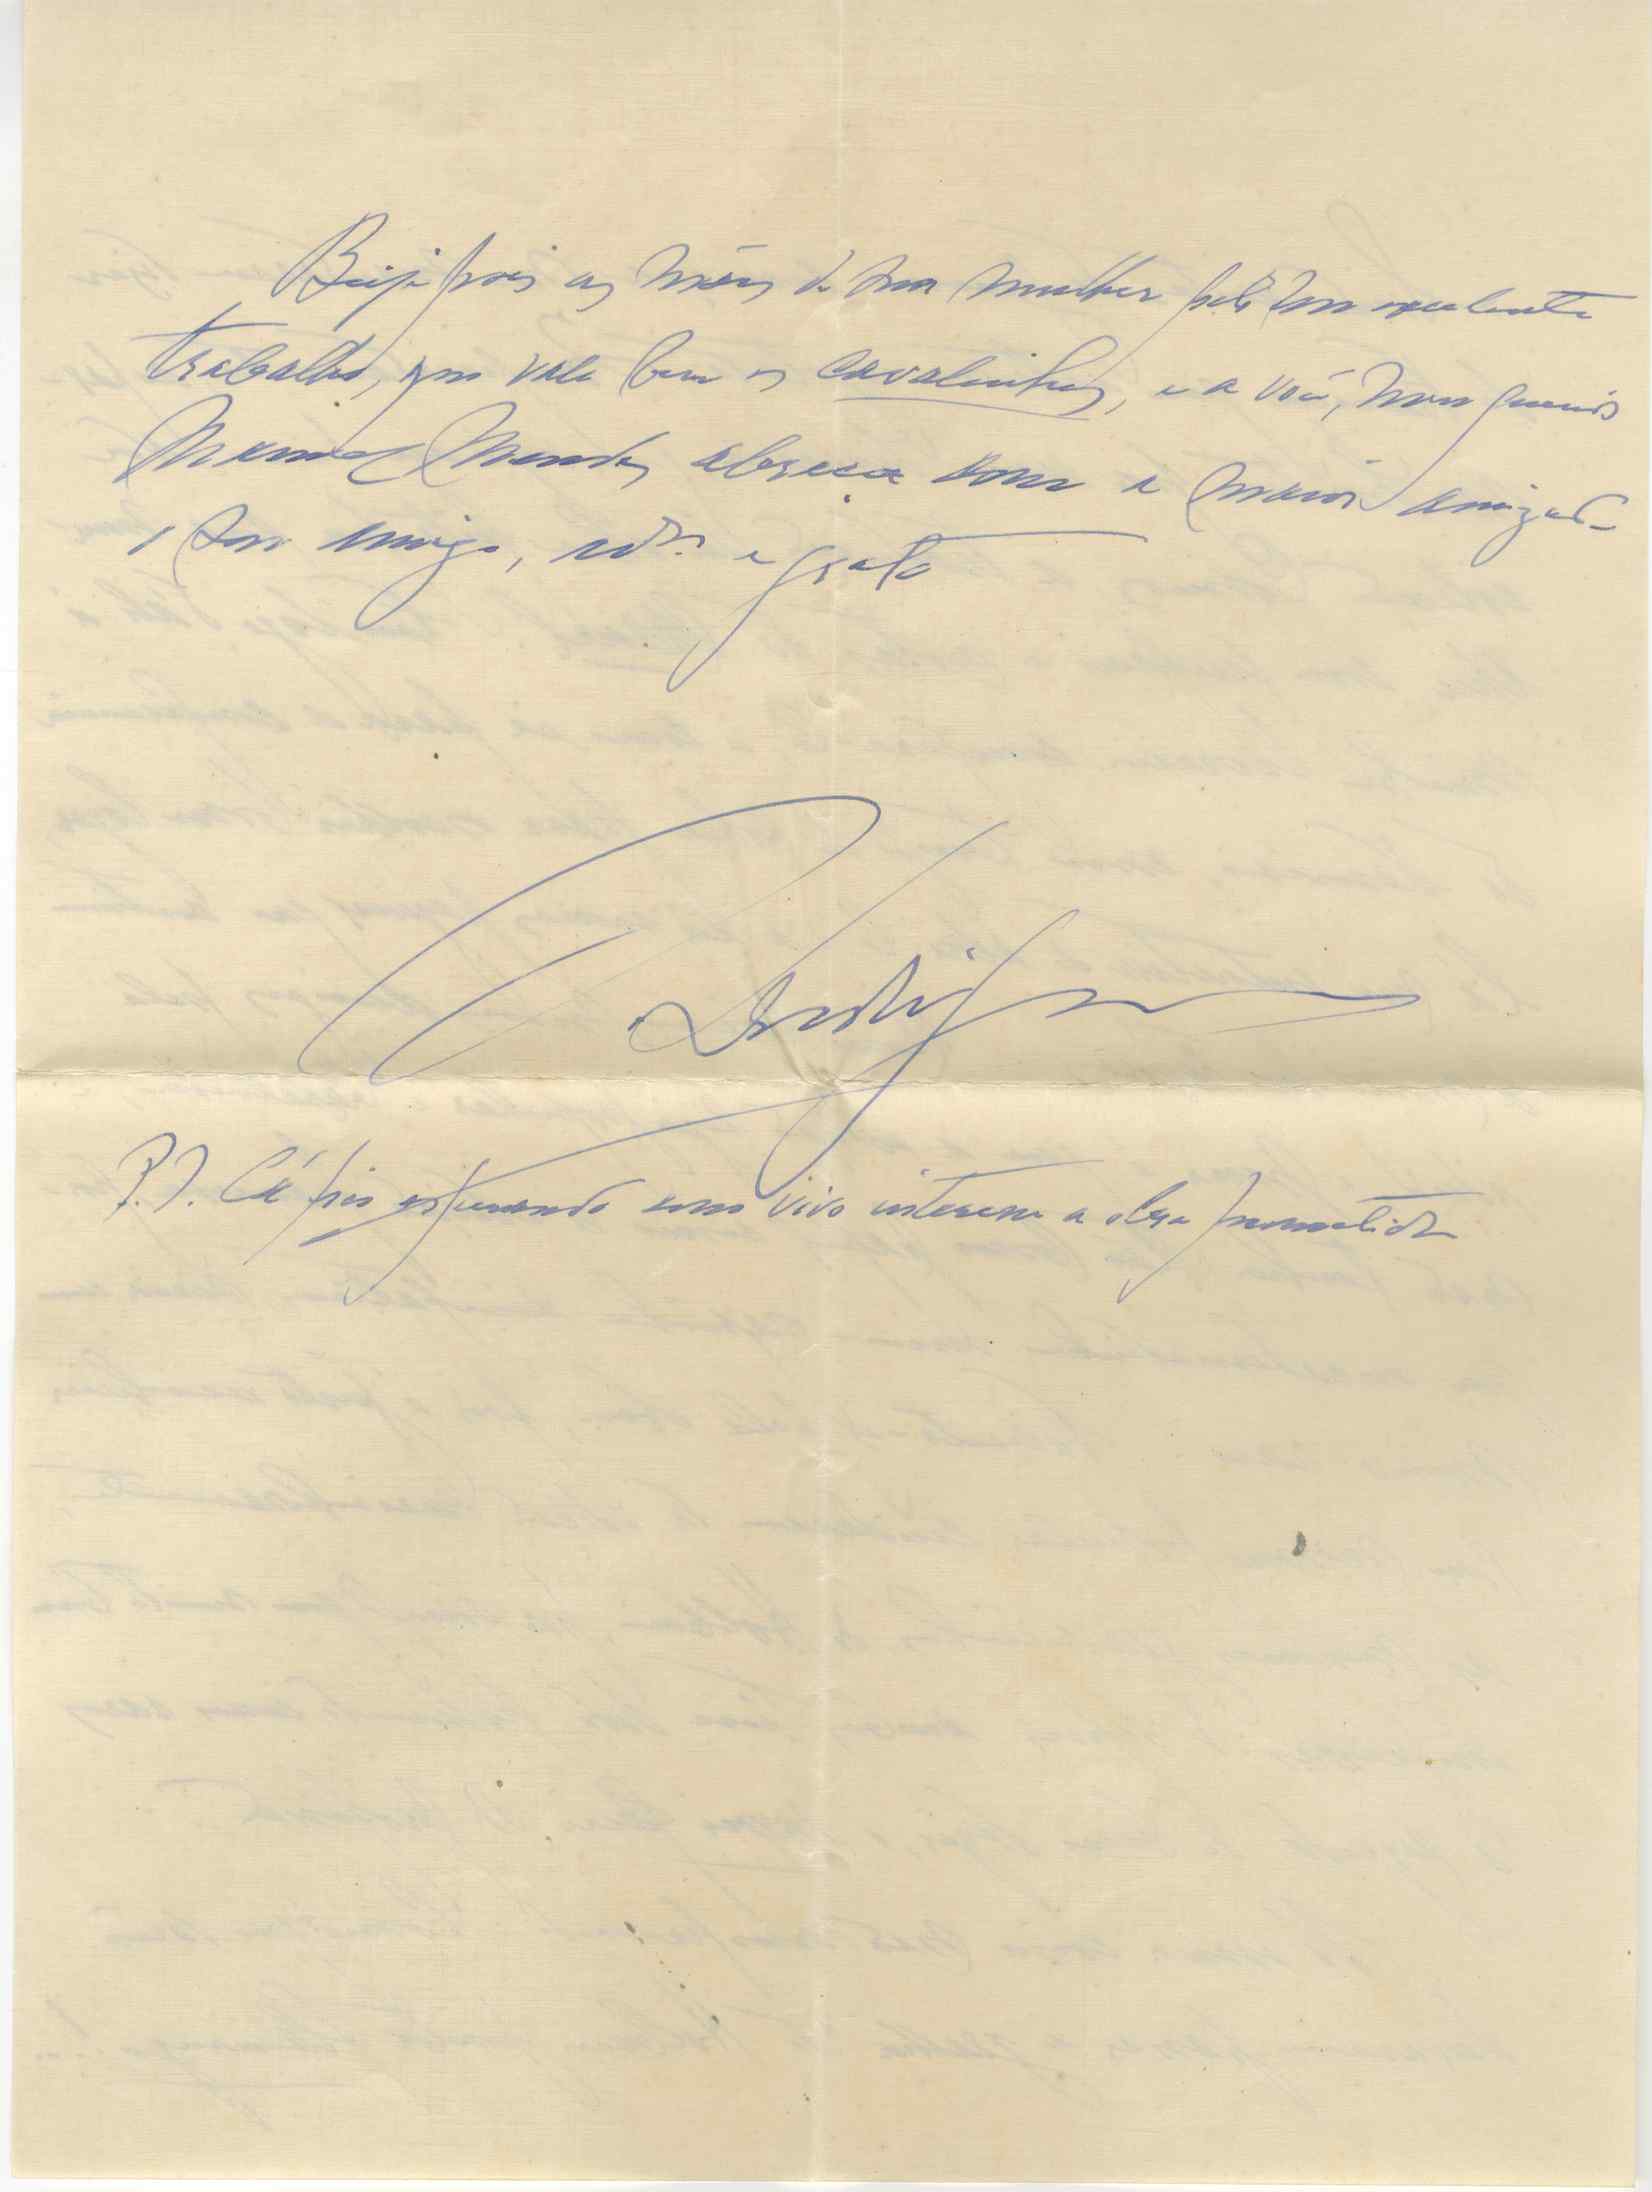 Beijo pois as mãos de sua mulher pelo seu excelente
trabalho, que vale bem os cavalinhos, e a você, meu querido
Manuel Mendes abraça com a maior amizade
o seu amigo, adr. e grato
P.S. Cá fico esperando com vivo interesse a obra prometida